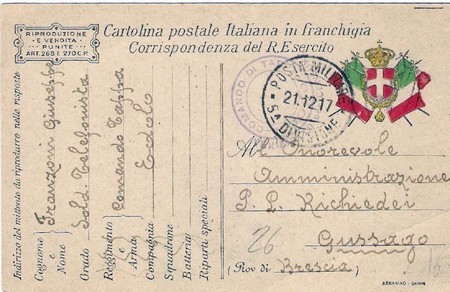 RIPRODUZIONE
E VENDITA
PUNITE
ART. 268 E 270 C.P.
Cartolina postale Italiana in franchigia
Corrispondenza del R. Esercito
Indirizzo del mittente da riprodurre nelle risposte
Cognome e Nome Franzoni Giuseppe
Grado Sold. Telefonista
Reggimento e Arma Comando Tappa
Compagnia Edolo
Squadrone
Batteria
Riparti speciali
COMANDO DI TAPPA
POSTA MILITARE
21.12.17
5A DIVISIONE
All' Onorevole
Amministrazione
P. L. Richiedei
26 Gussago
(Prov di Brescia)
16